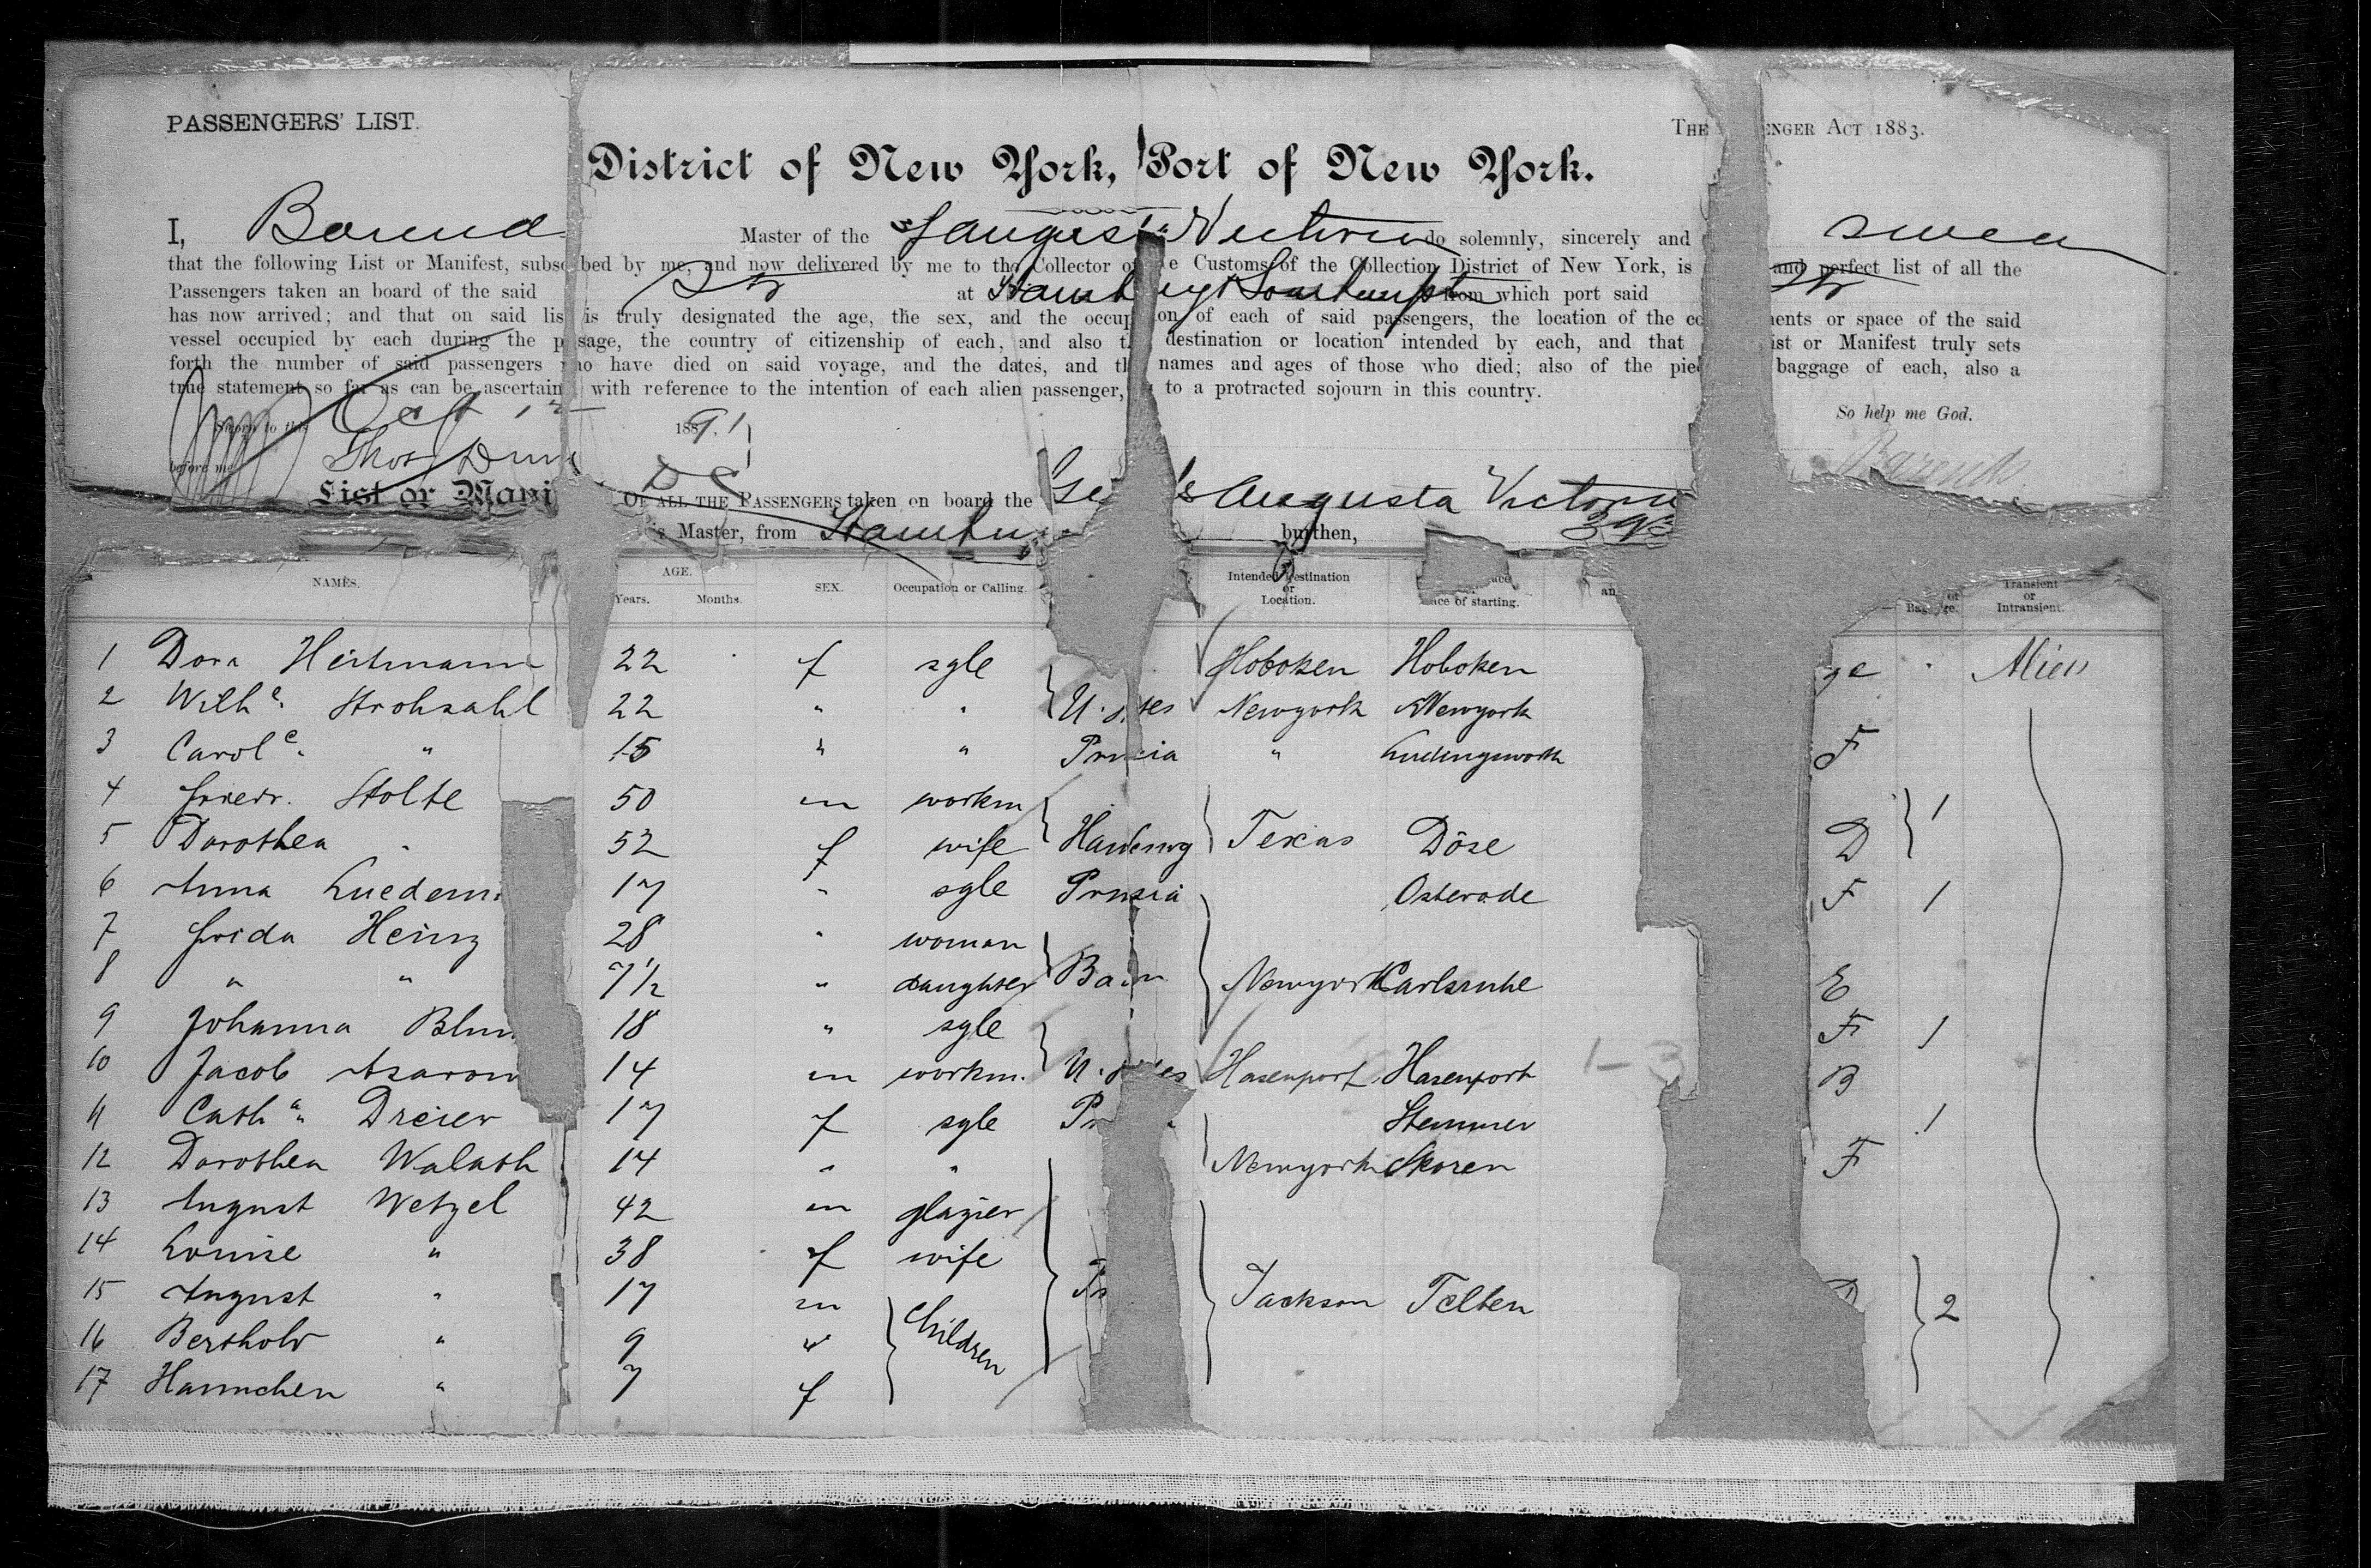 PASSENGERS' LIST. THE ENGER ACT 1883.
District of New York, Port of New York.
I, Barend Master of the SS August Victoria do solemnly, sincerely and swear
that the following List or Manifest, subsc bed by me, and now delivered by me to the Collector o e Customs of the Collection District of New York, is and perfect list of all the
Passengers taken an board of the said Str at Hamburg & Southampton from which port said Str
has now arrived; and that on said lis is truly designated the age, the sex, and the occup ion of each of said passengers, the location of the co ments or space of the said
vessel occupied by each during the p sage, the country of citizenship of each, and also t destination or location intended by each, and that ist or Manifest truly sets
forth the number of said passengers who have died on said voyage, and the dates, and th names and ages of those who died; also of the pie baggage of each, also a
true statement so far as can be ascertain with reference to the intention of each alien passenger, to a protracted sojourn in this country.
Sworn to this Oct 1891 So help me God.
before me Thos Dun Barends
List or Mani OF ALL THE PASSENGERS taken on board the Ger Ss Augusta Victoria
's Master, from Hambu burthen,
NAMES. AGE. Years. Months. SEX. Occupation or Calling. Intended Destination or Location. ace of starting. an of Bag ge. Transient or Intransient.
1 Dora Heitmann 22 f sgle Hoboken Hoboken ge Alien
2 Wilhe. Strohsahl 22 " " U. s tes Newyork Newyork
3 Carole. " 15 " " Prussia " Luedingsworth F
4 Friedr. Stolte 50 m workm Hamburg Texas Döse D 1
5 Dorothea " 52 f wife
6 Anna Luedem 17 " sgle Prussia Osterode F 1
7 Frida Heinz 28 " woman
8 " " 7½ " daughter Ba n Newyork Carlsruhe E
9 Johanna Blum 18 " sgle F 1
10 Jacob Asaron 14 m workm. U. s tes Hasenport Hasenport B 1-3
11 Catha. Dreier 17 f sgle Pr Stemmer 1
12 Dorothea Walath 14 " " Newyork Skoren F
13 August Wetzel 42 m glazier
14 Louise " 38 f wife
15 August " 17 m children Jackson Telten D 2
16 Berthold " 9 "
17 Hannchen " 7 f